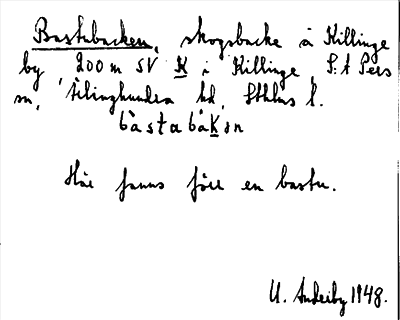 Bastubacken, skogsbacke å Killinge
by, 200 m SV K i Killinge, S:t Pers
sn, Ærlinghundra hd, Sthlms l.
bastabakən
Här fanns förr en bastu.
U. Anderby 1948.